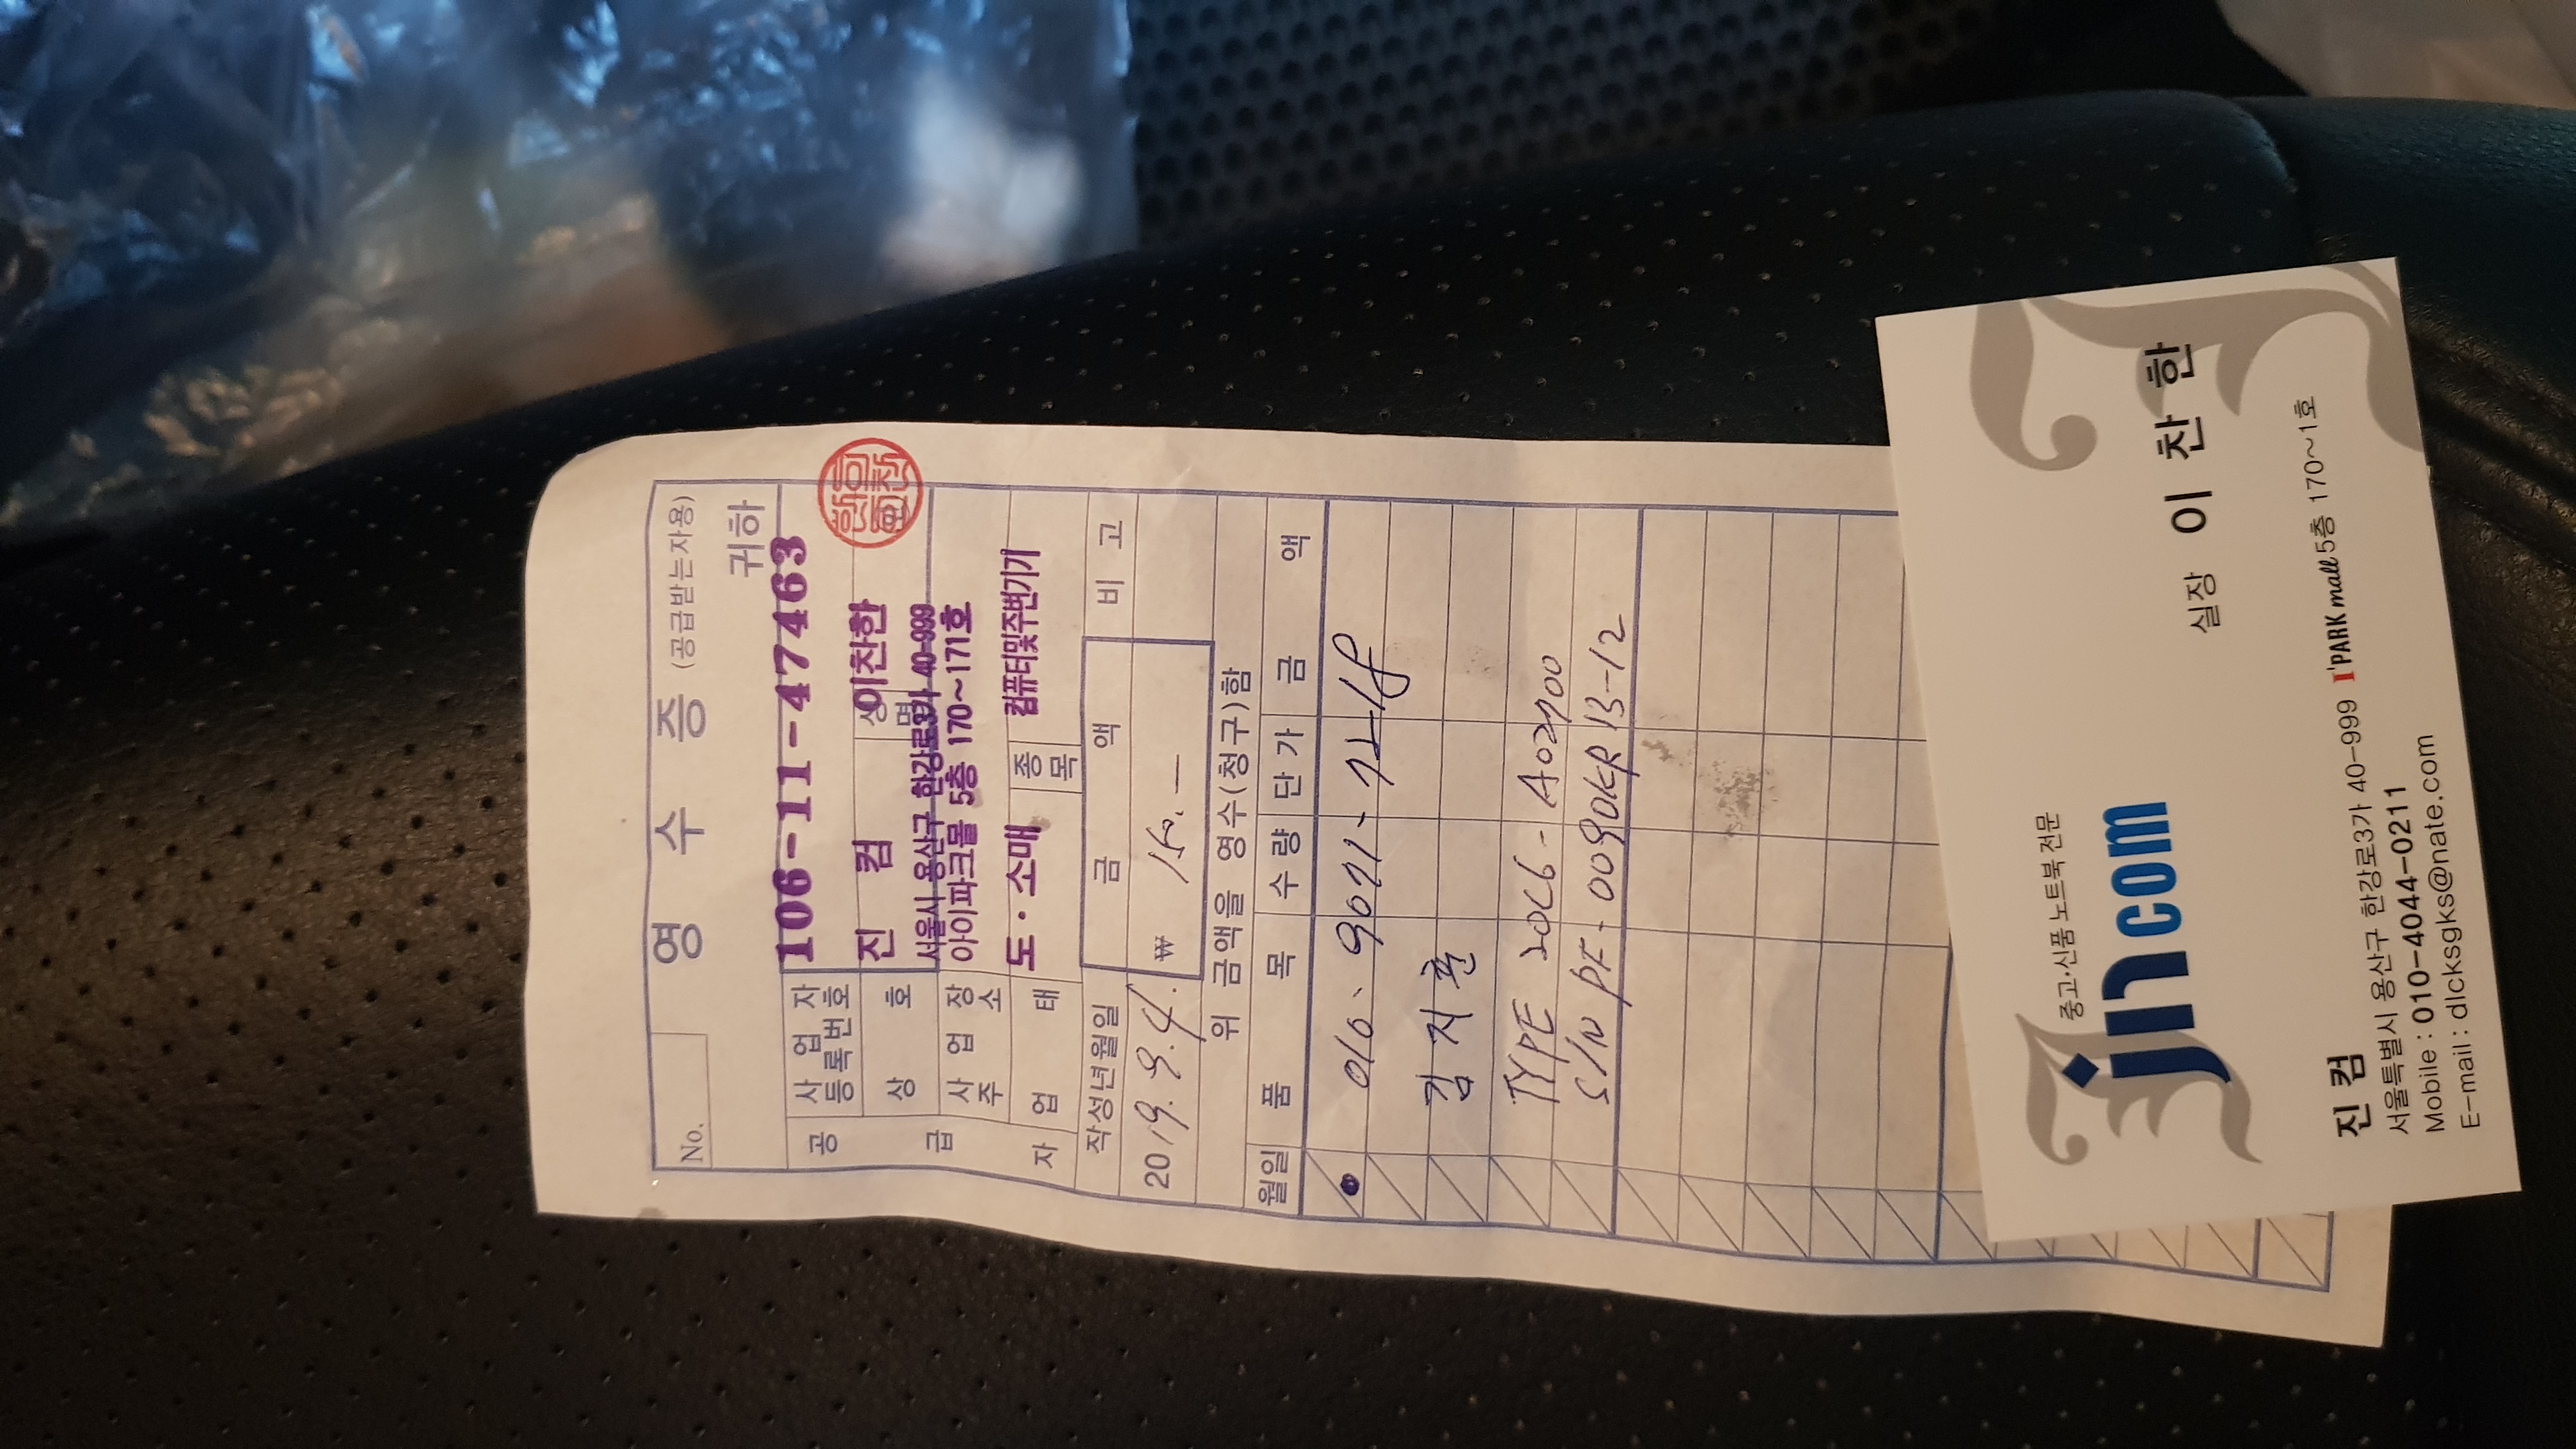 No.
영 수 증 (공급받는자용)
귀하
공급자
사업자등록번호 106-11-47463
상호 진 컴 성명 이찬한
사업장주소 서울시 용산구 한강로3가 40-999
아이파크몰 5층 170~171호
업태 도·소매 종목 컴퓨터및주변기기
작성년월일 금 액 비 고
2019. 9. 4. ₩ 150.—
위 금액을 영수(청구)함
월일 품 목 수량 단가 금 액
010- 9071- 7218
김지훈
TYPE 20C6- A02700
S/N PF- 0090KR 13-12
중고·신품 노트북 전문
jn com
실장 이 찬 한
진 컴
서울특별시 용산구 한강로3가 40-999 I'PARK mall 5층 170~1호
Mobile : 010-4044-0211
E-mail : dlcksgks@nate.com